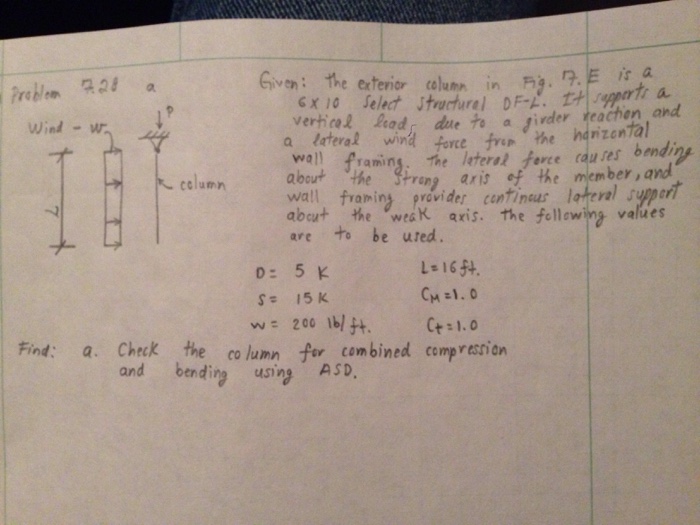 Problem 7.28 a
Given: The exterior column in Fig. 7.E is a
6 x 10 Select Structural DF-L. It supports a
vertical load, due to a girder reaction and
a lateral wind force from the horizontal
wall framing. The lateral force causes bending
about the strong axis of the member, and
wall framing provides continous lateral support
about the weak axis. The following values
are to be used.
P
Wind - w
column
L
D= 5 K
L=16 ft.
S= 15 K
CM =1.0
w= 200 lb/ft.
Ct=1.0
Find: a. Check the column for combined compression
and bending using ASD.